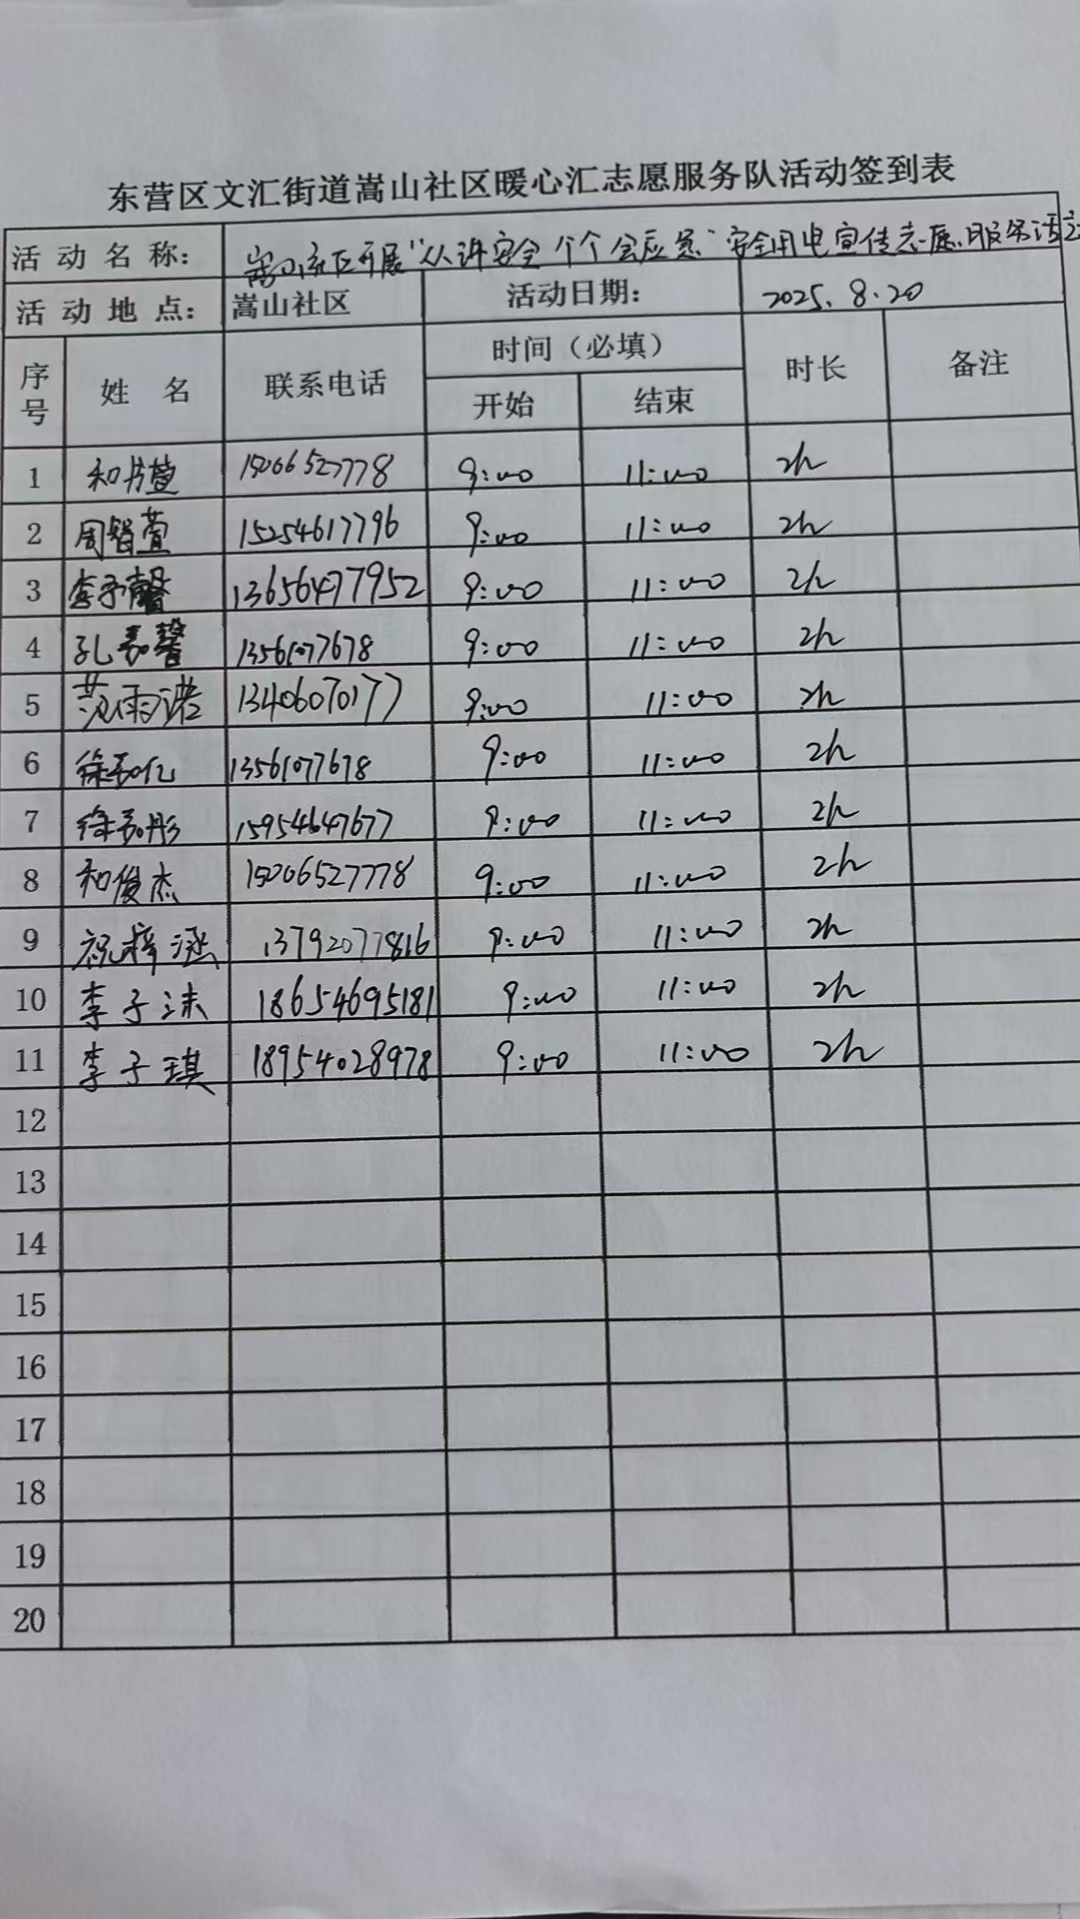 东营区文汇街道嵩山社区暖心汇志愿服务队活动签到表
活动名称: 嵩山社区开展"人人讲安全 个个会应急"安全用电宣传志愿服务活动
活动地点: 嵩山社区 活动日期: 2025.8.20
序号 姓名 联系电话 时间（必填） 时长 备注
开始 结束
1 和书萱 15066527778 9:00 11:00 2h
2 周智萱 15254617796 9:00 11:00 2h
3 李予馨 13656477952 9:00 11:00 2h
4 孔嘉馨 13561077678 9:00 11:00 2h
5 范雨诺 13406070177 9:00 11:00 2h
6 徐嘉亿 13561077678 9:00 11:00 2h
7 徐嘉彤 15954647677 9:00 11:00 2h
8 和俊杰 15006527778 9:00 11:00 2h
9 祝梓涵 13792077816 9:00 11:00 2h
10 李子沫 18654695181 9:00 11:00 2h
11 李子琪 18954028978 9:00 11:00 2h
12
13
14
15
16
17
18
19
20